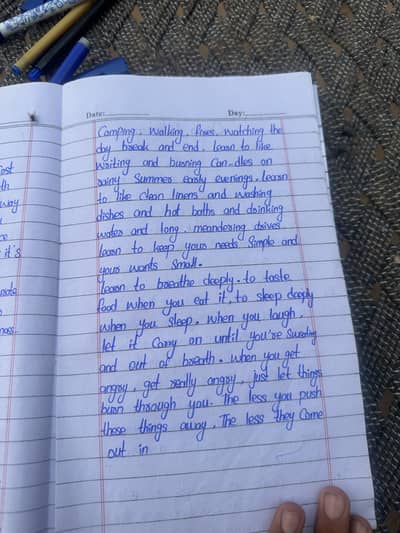 Date: Day:
Camping, Walking, fires, watching the
day break and end, learn to like
writing and burning Can-dles on
rainy Summer early evenings. learn
to like clean linens and washing
dishes and hot baths and drinking
water and long, meandering drives.
learn to keep your needs Simple and
your wants Small.
learn to breathe deeply. to taste
food when you eat it, to sleep deeply
when you sleep. when you laugh,
let it Carry on until you're Sweating
and out of breath. when you get
angry, get really angry, just let things
burn through you. The less you push
these things away, The less they Come
out in
ost
th
way
it's